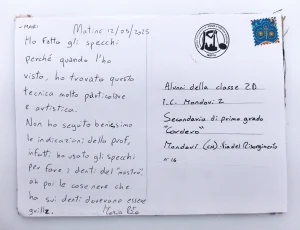 -MARI
Matino 12/05/2025
Ho fatto gli specchi
perché quando l'ho
visto, ho trovato questa
tecnica molto particolare
e artistica.
Non ho seguito benissimo
le indicazioni della prof,
infatti ho usato gli specchi
per fare i denti del "mostro",
ah poi le cose nere che
ha sui denti dovevano essere
Alunni della classe 2D
I.C. Mondovì 2
Secondaria di primo grado
"Cordero"
Mondovì (CN) Via del Risorgimento
n 16